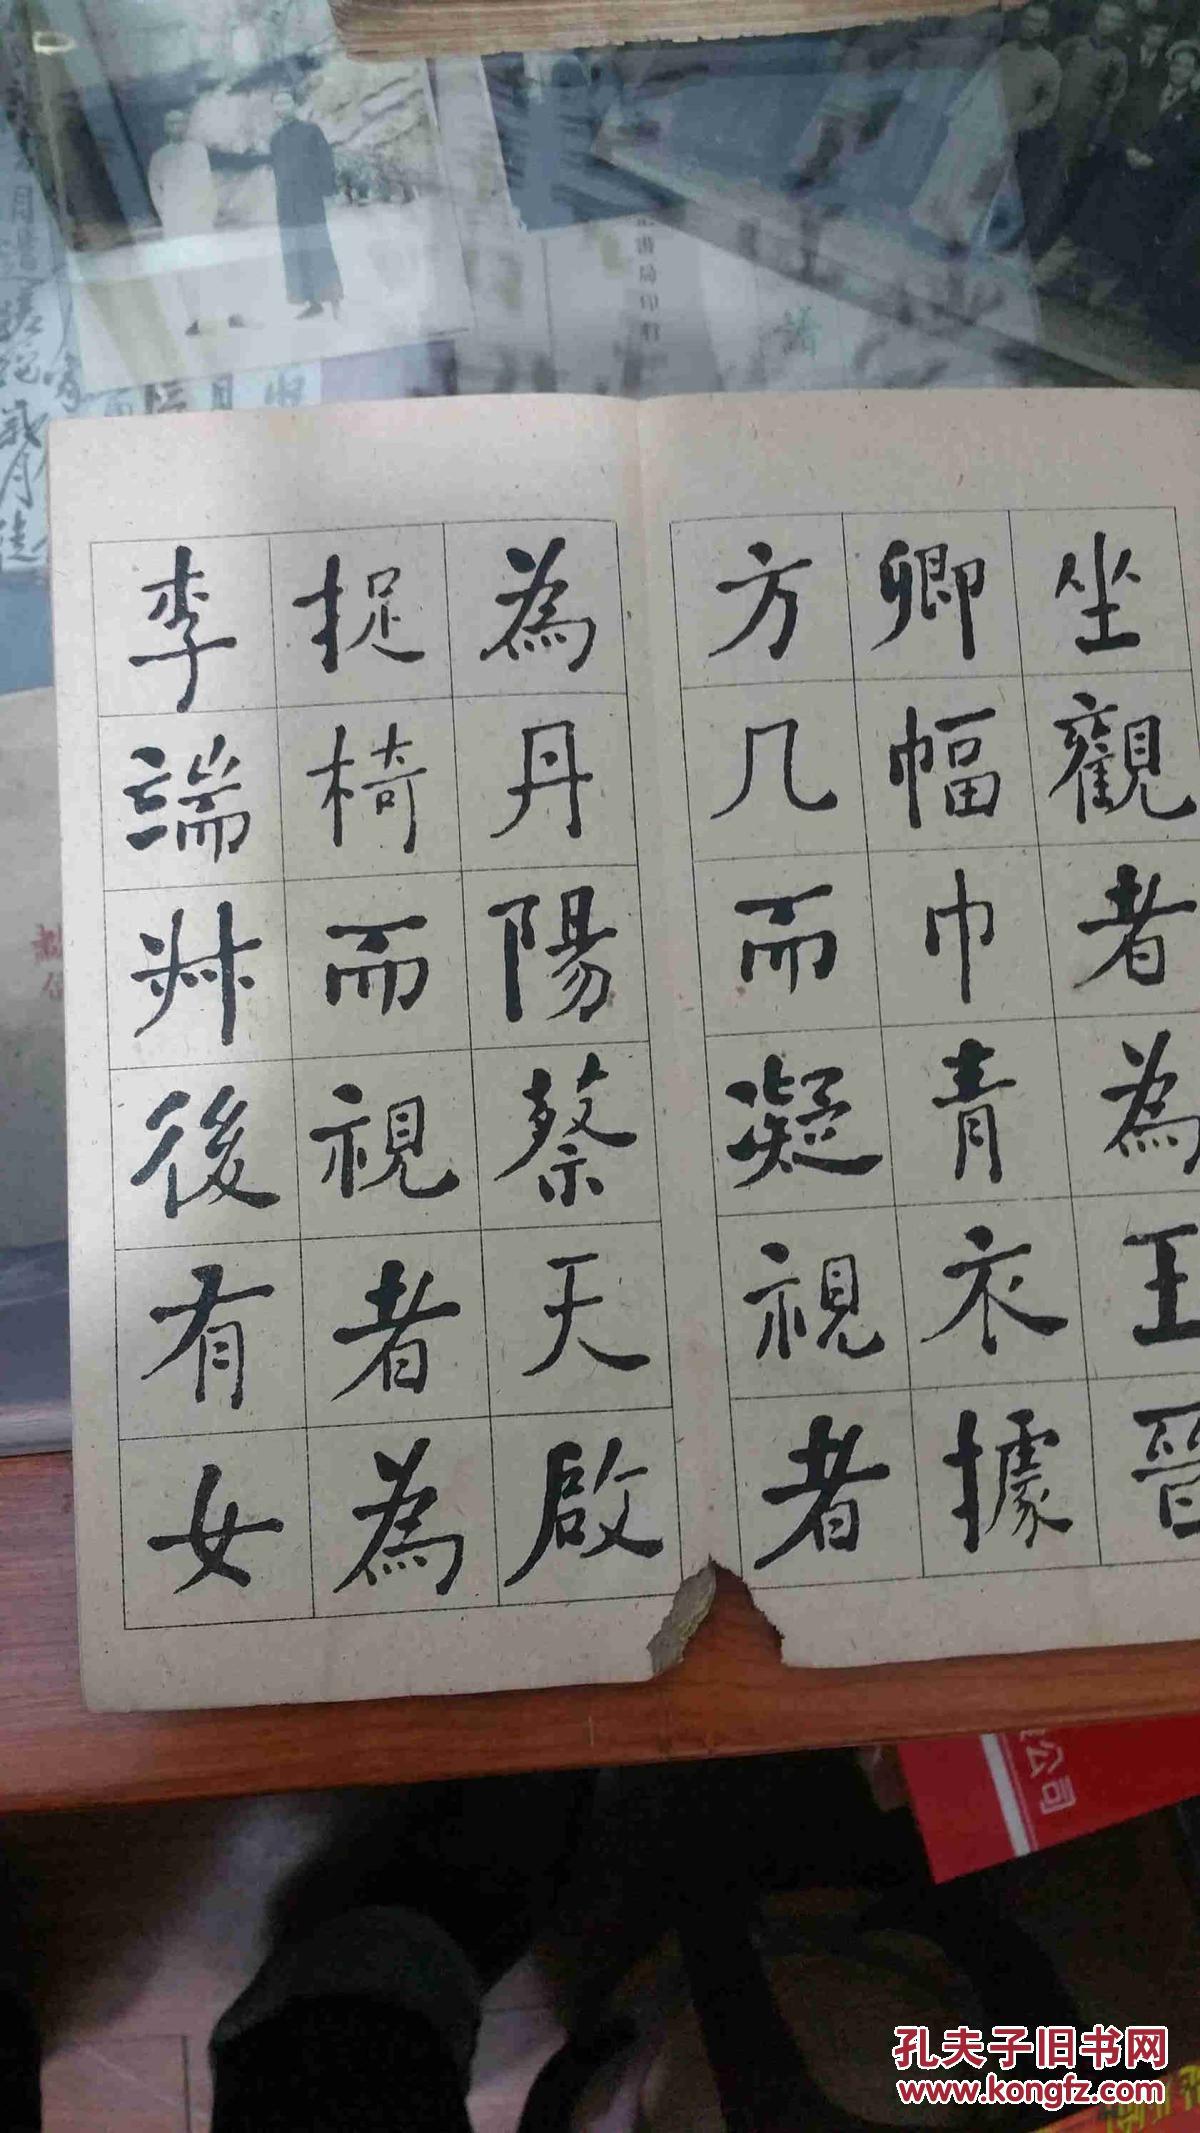 坐觀者為王晉
卿幅巾青衣據
方几而凝視者
為丹陽蔡天啟
捉椅而視者為
李端叔後有女
書局印行
公司
孔夫子旧书网
www.kongfz.com